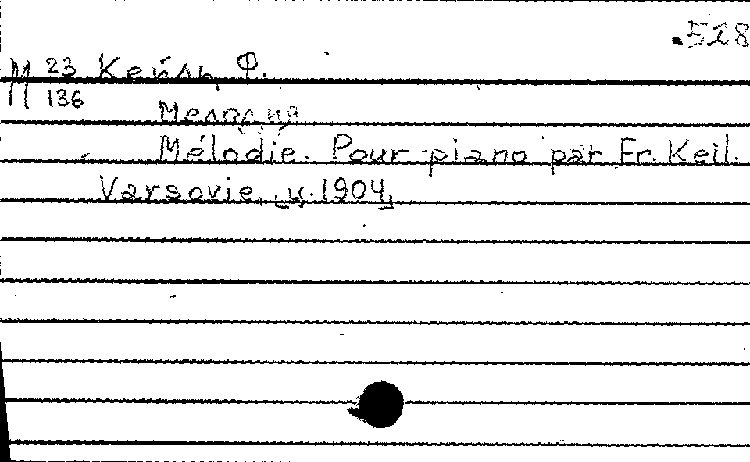 .528
М 23 Кейль Ф.
136
Мелодия
Mélodie. Pour piano par Fr. Keil.
Varsovie, ц. 1904